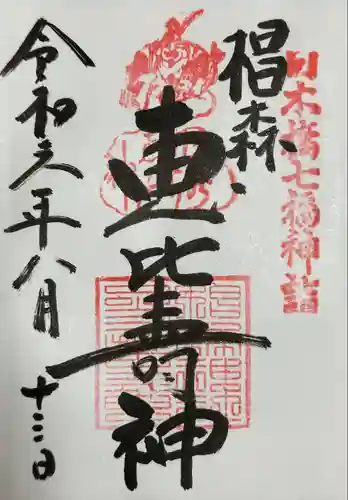 日本橋七福神詣
椙森
恵比壽神
令和六年八月十三日